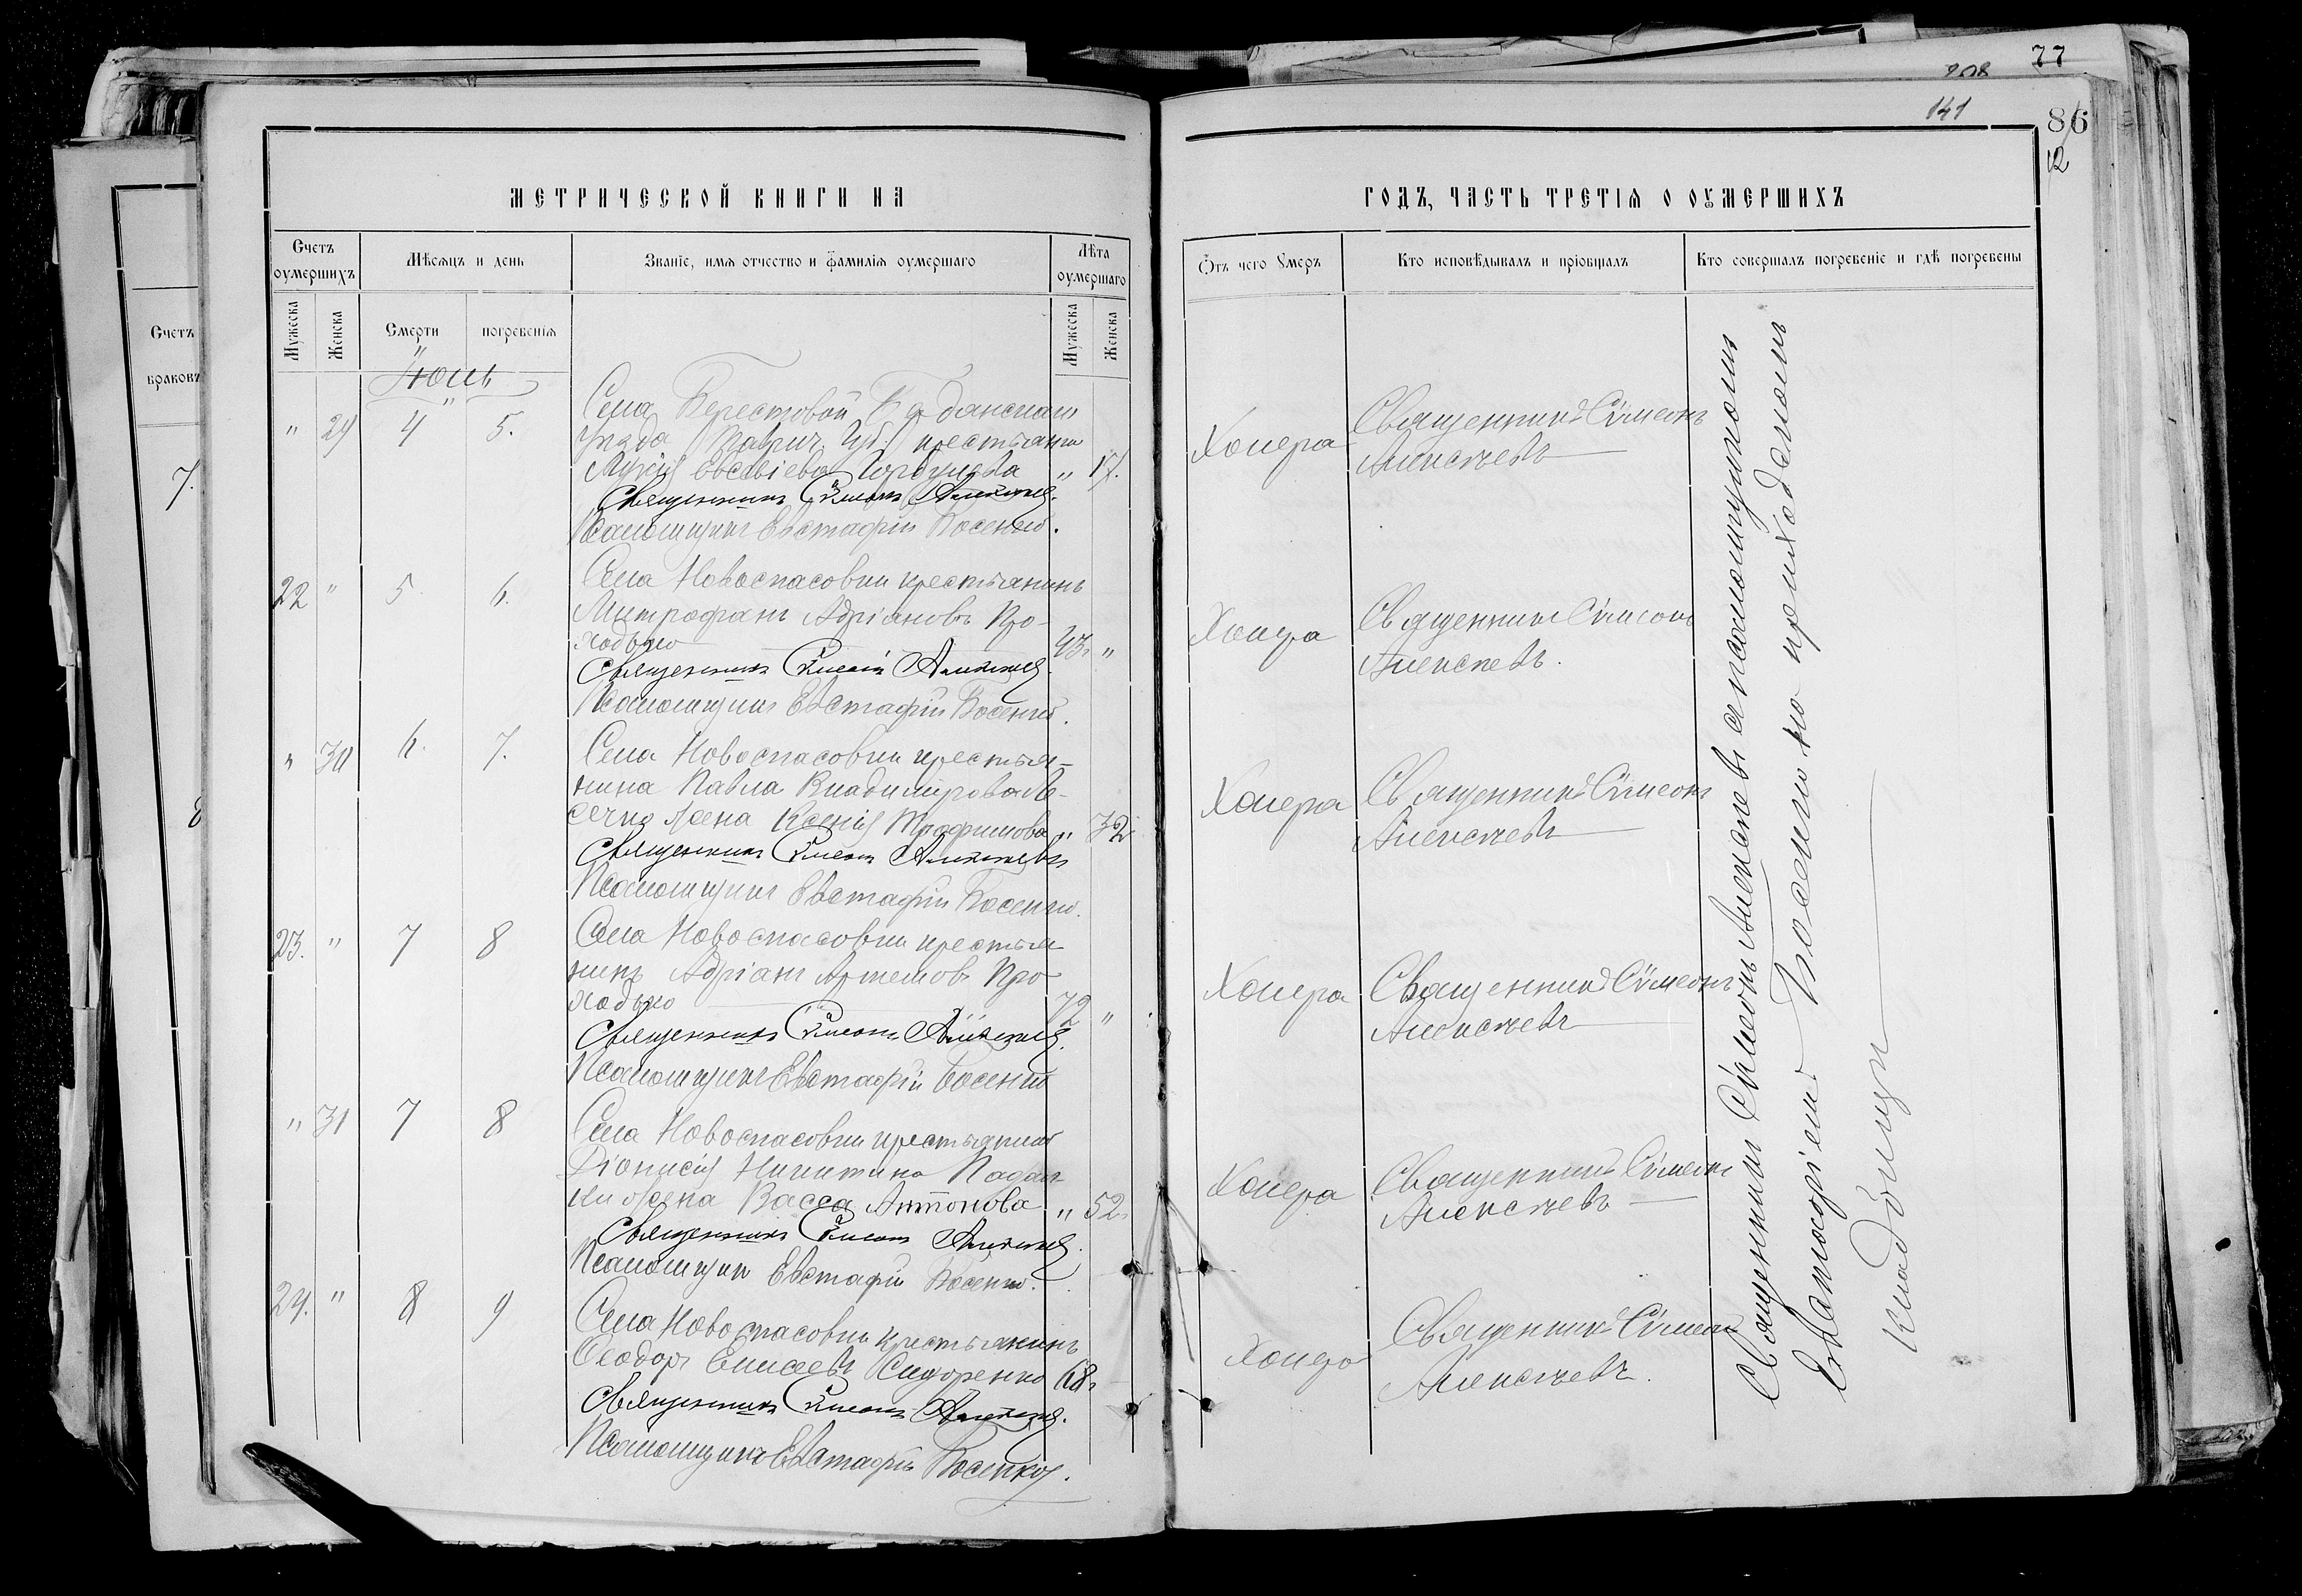 77
208
141
86
12
МЕТРИЧЕСКОЙ КНИГИ НА
ГОДЪ, ЧАСТЬ ТРЕТІѦ О ОУМЕРШИХЪ
Счетъ оумершихъ
Мѣсяцъ и день
Званіе, имя отчество и фамилія оумершаго
Лѣта оумершаго
Мужеска
Женска
Смерти
погребенія
Мужеска
Женска
Ѿтъ чего Умеръ
Кто исповѣдывалъ и пріобщалъ
Кто совершалъ погребеніе и гдѣ погребены
Счетъ
браковъ
7.
8
Іюль
" 29 4 5.
Села Берестовой Бердянскаго
уѣзда Таврич. губ. крестьянка
Евсевіева " 17.
Священникъ Сѵмеонъ Алексѣевъ
Псаломщикъ Евстафій Косенко.
Холера
Священникъ Сѵмеонъ
Алексѣевъ
22 " 5 6.
Села Новоспасовки крестьянинъ
Митрофанъ Адріановъ Про-
ходько 43 "
Священникъ Сѵмеонъ Алексѣевъ
Псаломщикъ Евстафій Косенко.
Холера
Священникъ Сѵмеонъ
Алексѣевъ.
" 30 6. 7.
Села Новоспасовки крестья-
нина Павла Владимірова
жена Ксенія Трофимова " 32
Священникъ Сѵмеонъ Алексѣевъ
Псаломщикъ Евстафій Косенко.
Холера
Священникъ Сѵмеонъ
Алексѣевъ
23. " 7 8
Села Новоспасовки крестья-
нинъ Адріанъ Артемовъ Про-
ходько 72 "
Священникъ Сѵмеонъ Алексѣевъ.
Псаломщикъ Евстафій Косенко
Холера
Священникъ Сѵмеонъ
Алексѣевъ
" 31 7 8
Села Новоспасовки крестьянина
Діонисія Никитина
жена Васса Антонова " 52
Священникъ Сѵмеонъ Алексѣевъ.
Псаломщикъ Евстафій Косенко.
Холера
Священникъ Сѵмеонъ
Алексѣевъ
24. " 8 9
Села Новоспасовки крестьянинъ
Ѳеодоръ Елисеевъ Сидоренко 68
Священникъ Сѵмеонъ Алексѣевъ.
Псаломщикъ Евстафій Косенко.
Холера
Священникъ Сѵмеонъ
Алексѣевъ.
Священникъ Сѵмеонъ Алексѣевъ съ псаломщикомъ
Евстафіемъ Косенко на приходскомъ
кладбищѣ